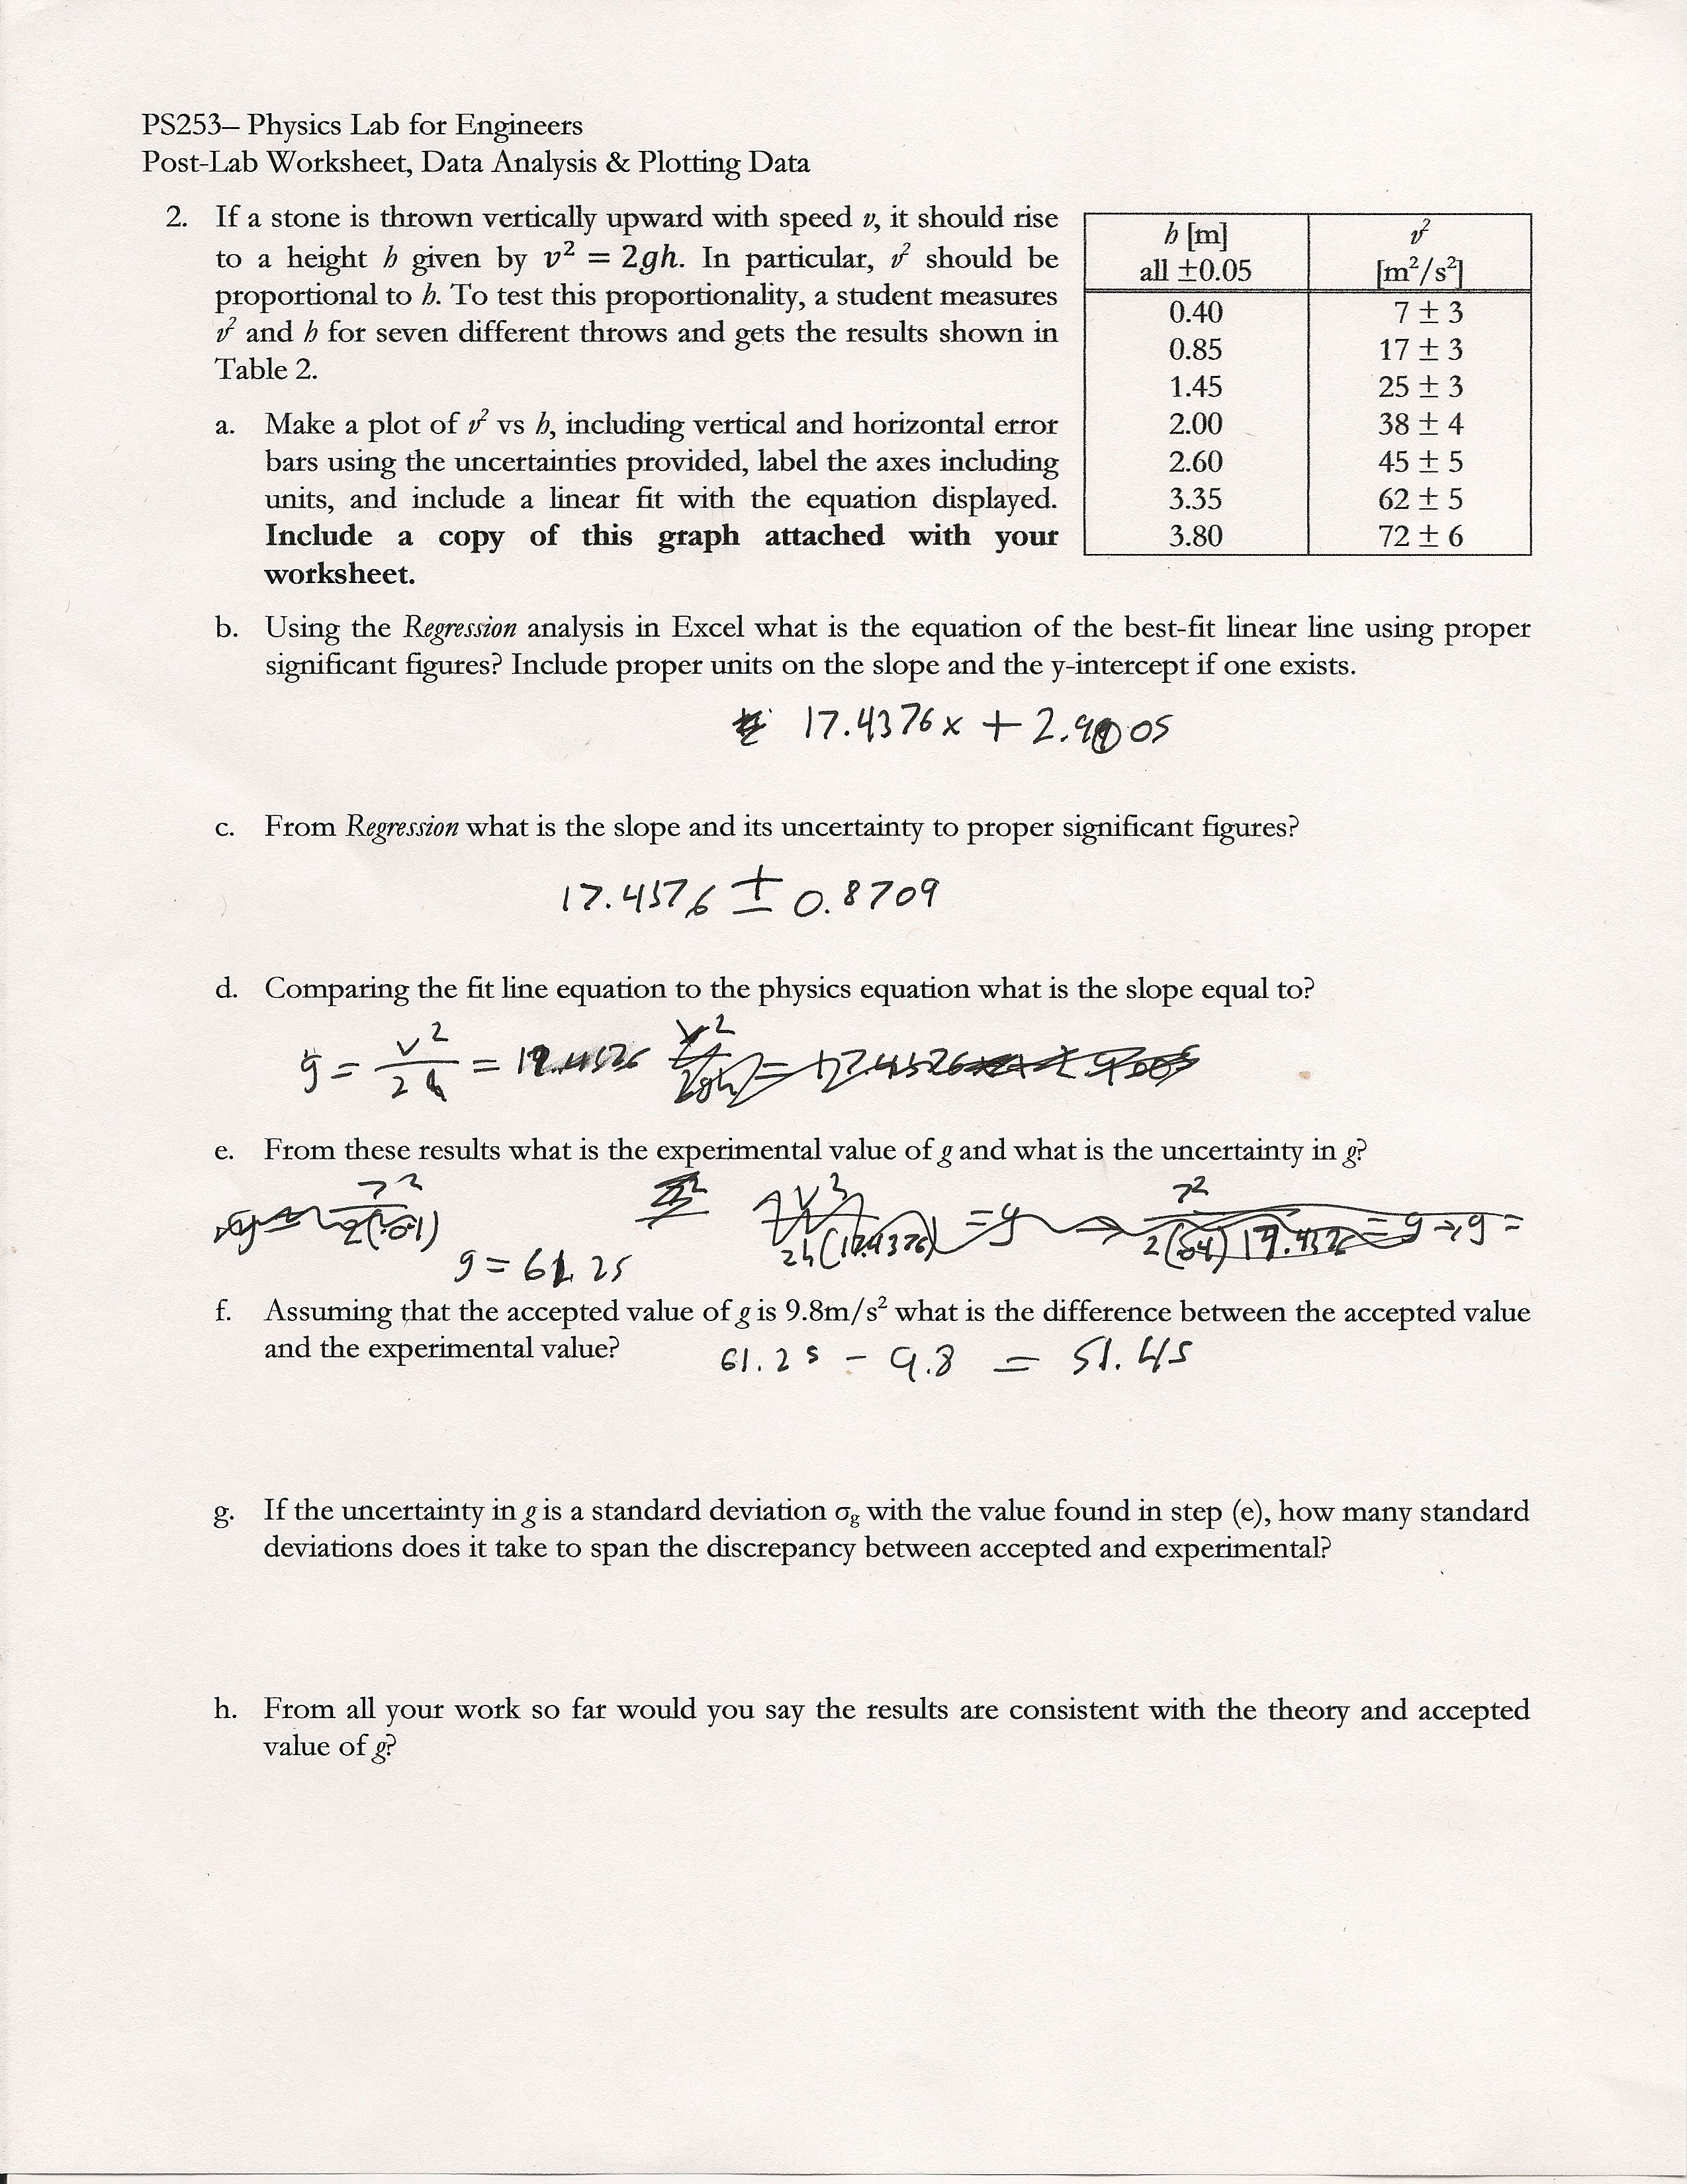 PS253– Physics Lab for Engineers
Post-Lab Worksheet, Data Analysis & Plotting Data
2. If a stone is thrown vertically upward with speed v, it should rise
to a height h given by v² = 2gh. In particular, v² should be
proportional to h. To test this proportionality, a student measures
v² and h for seven different throws and gets the results shown in
Table 2.
h [m] v²
all ±0.05 [m²/s²]
0.40 7 ± 3
0.85 17 ± 3
1.45 25 ± 3
2.00 38 ± 4
2.60 45 ± 5
3.35 62 ± 5
3.80 72 ± 6
a. Make a plot of v² vs h, including vertical and horizontal error
bars using the uncertainties provided, label the axes including
units, and include a linear fit with the equation displayed.
Include a copy of this graph attached with your
worksheet.
b. Using the Regression analysis in Excel what is the equation of the best-fit linear line using proper
significant figures? Include proper units on the slope and the y-intercept if one exists.
17.4376x +
c. From Regression what is the slope and its uncertainty to proper significant figures?
17.4376 ± 0.8709
d. Comparing the fit line equation to the physics equation what is the slope equal to?
g = v² / 2h =
e. From these results what is the experimental value of g and what is the uncertainty in g?
g = 61.25
f. Assuming that the accepted value of g is 9.8m/s² what is the difference between the accepted value
and the experimental value? 61.25 - 9.8 = 51.45
g. If the uncertainty in g is a standard deviation σg with the value found in step (e), how many standard
deviations does it take to span the discrepancy between accepted and experimental?
h. From all your work so far would you say the results are consistent with the theory and accepted
value of g?